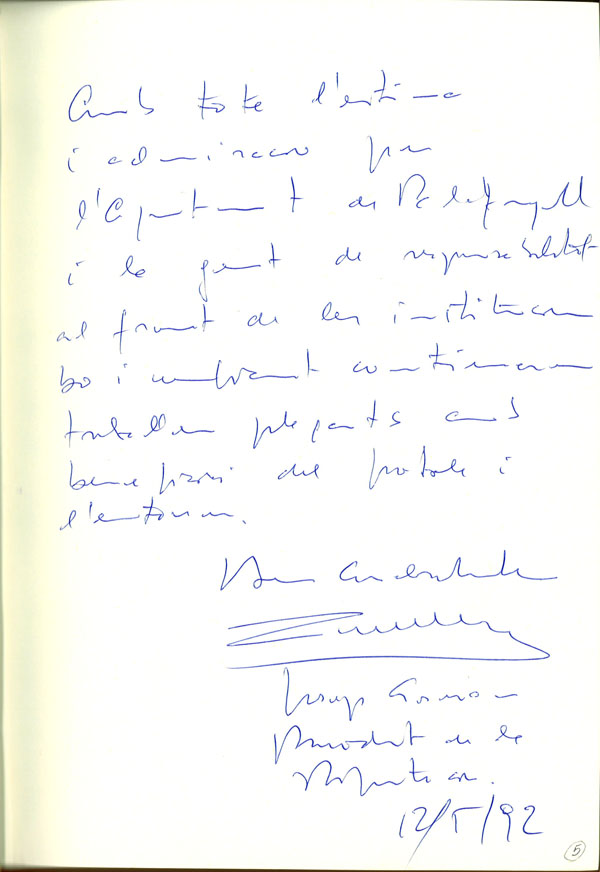 Amb tota l'estima
i admiració per
l'Ajuntament de Palafrugell
i la gent de responsabilitat
al front de les institucions
bo i continuant
treballen plegats amb
benefici del poble i
l'entorn.
Ben Cordialment
Josep
President de la
Diputació.
12/5/92
5